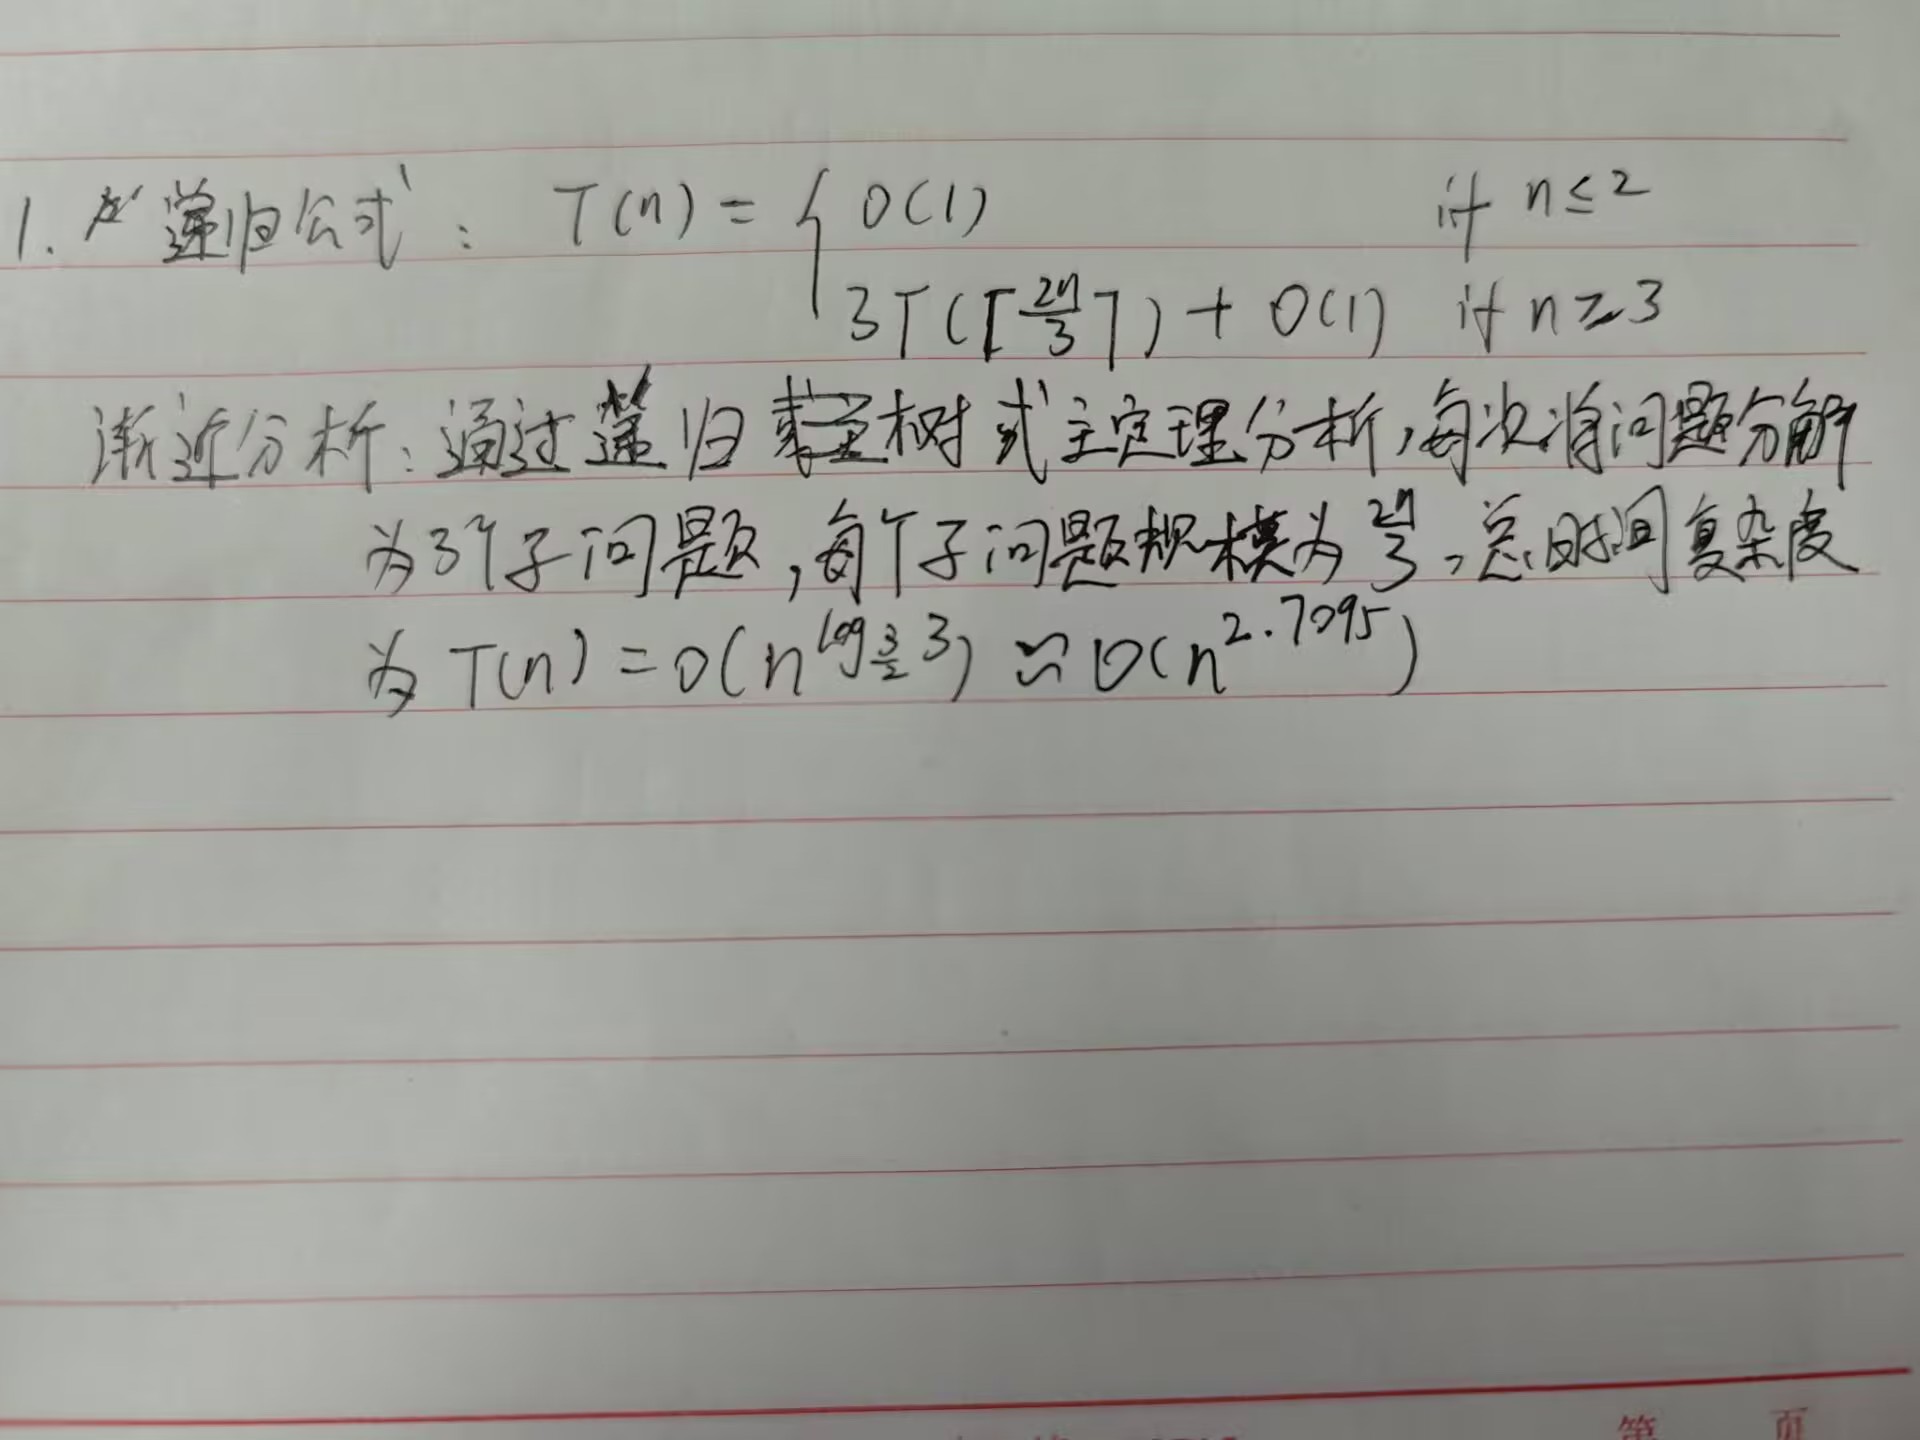 1. 递归公式: T(n) = { O(1) if n≤2
3T(⌈2n/3⌉) + O(1) if n≥3
渐近分析:通过递归树式主定理分析,每次将问题分解
为3个子问题,每个子问题规模为2n/3,总时间复杂度
为T(n)=O(n^log_{3/2}3)≈O(n^2.7095)
第 页